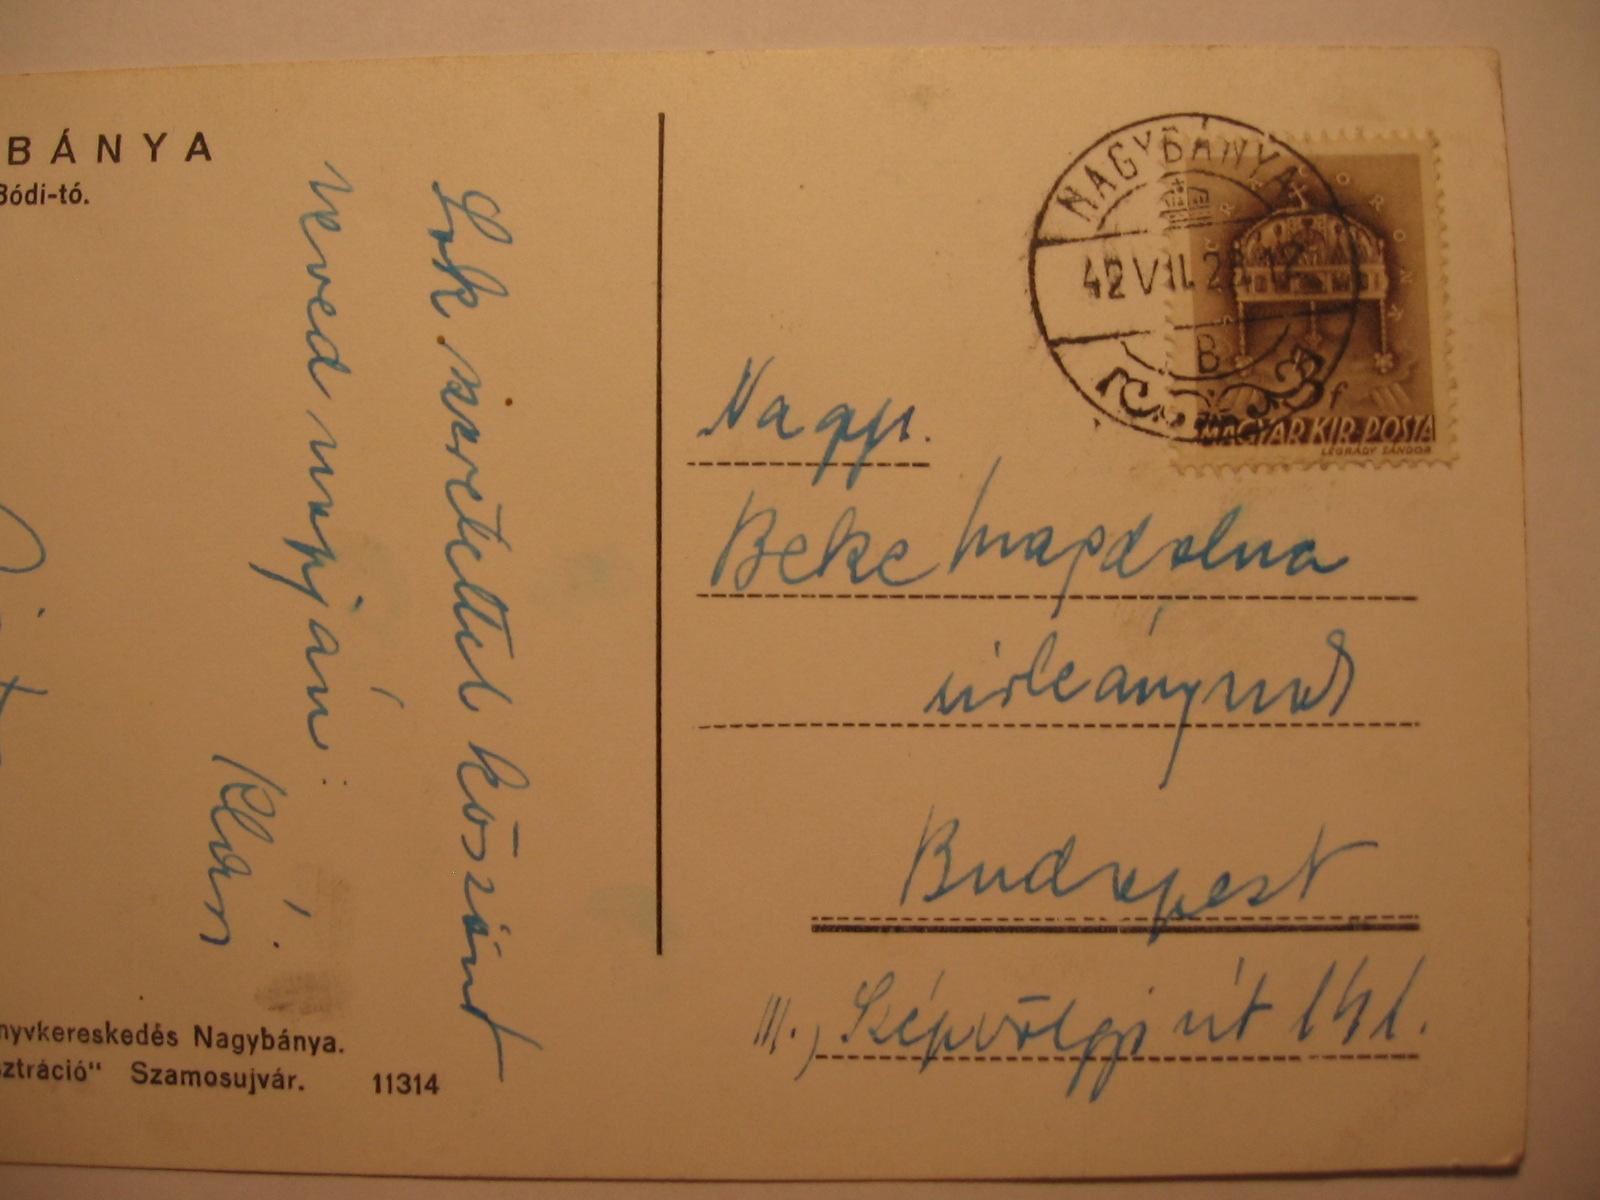 BÁNYA
Bódi-tó.
Sok szeretettel köszönt
neved napján:
Klári
nyvkereskedés Nagybánya.
sztráció" Szamosujvár. 11314
NAGYBÁNYA
42 VII. 2
B
MAGYAR KIR. POSTA
LÉGRÁDY SÁNDOR
Nagys.
Beke Magdolna
úrleánynak
Budapest
III., Szépvölgyi út 141.